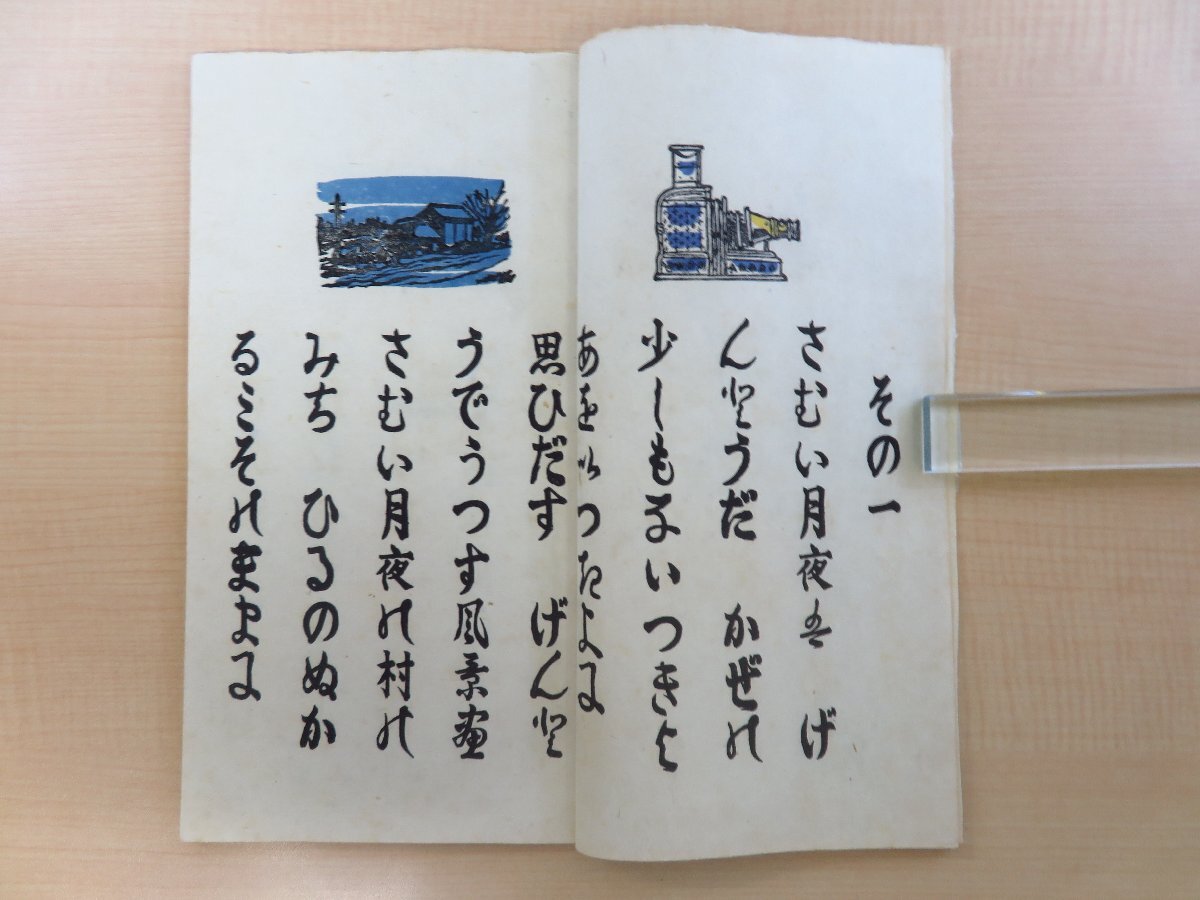 その一
さむい月夜は　げ
んとうだ　かぜの
少しもない　つきよ
あをいつたよに
思ひだす　げんと
うでうつす風景画
さむい月夜の村の
みち　ひるのぬか
るミそのままに